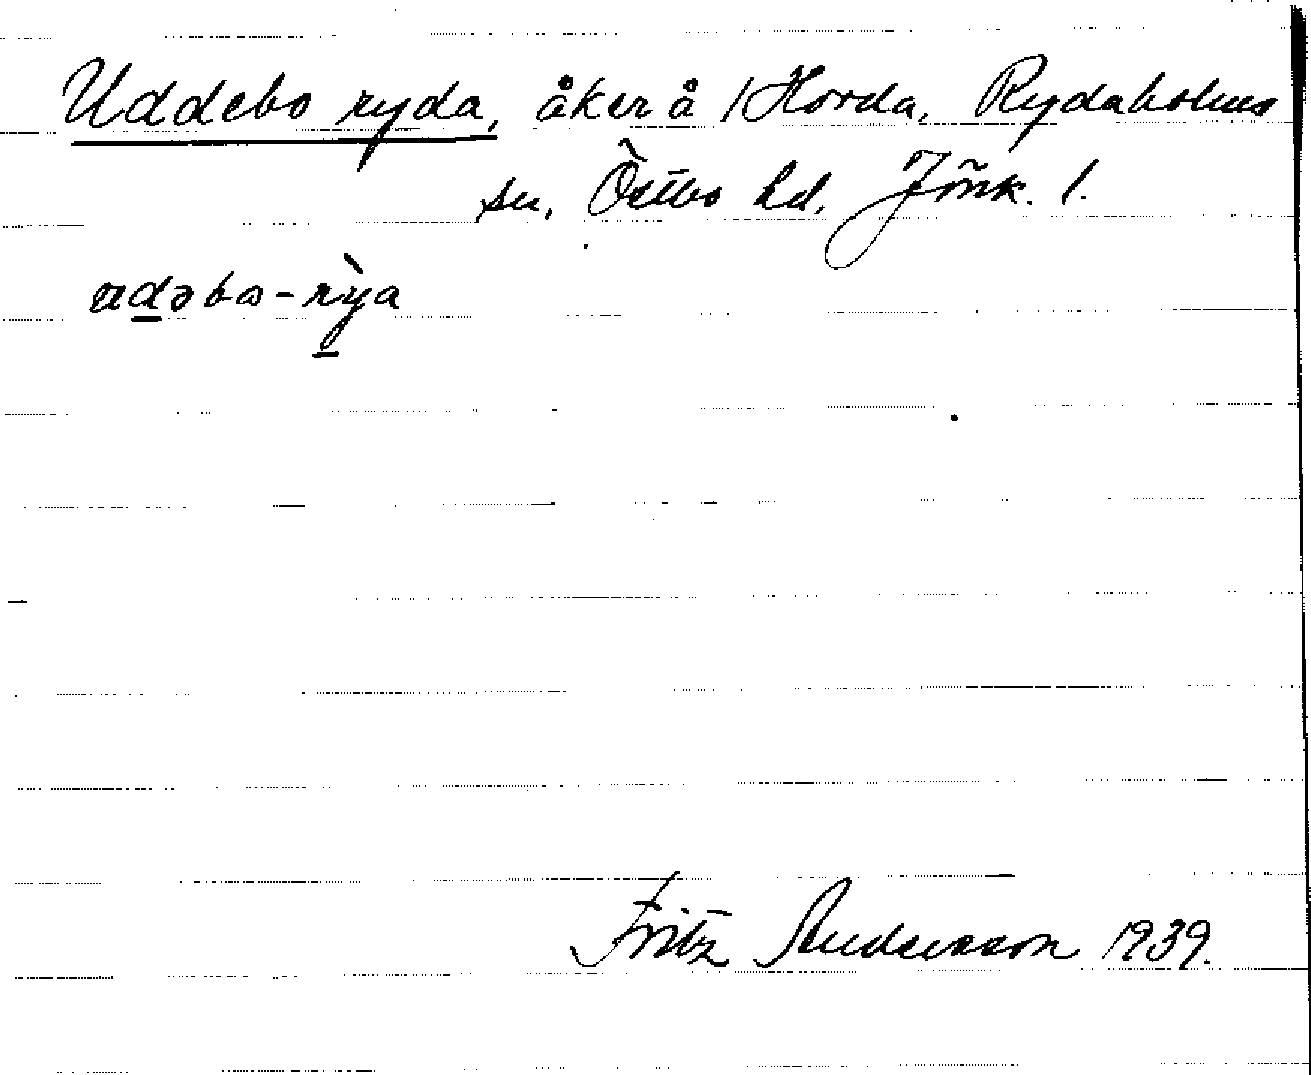 Uddebo ryda, åker å 1 Horda, Rydaholms
sn, Östbo hd, Jönk. l.
udəbo-rỳa
Fritz Andersson 1939.